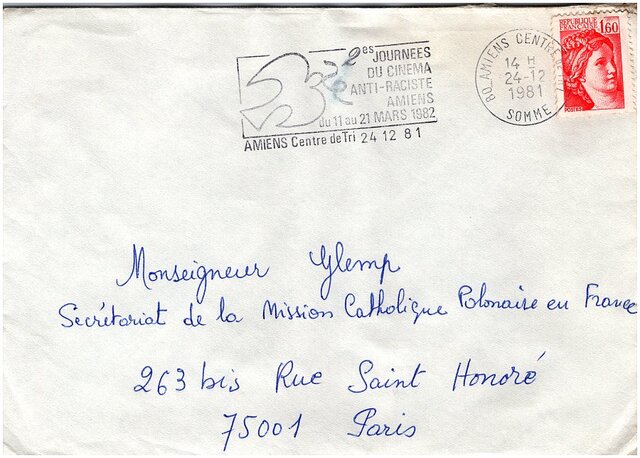 2es JOURNEES
DU CINEMA
ANTI-RACISTE
AMIENS
du 11 au 21 MARS 1982
AMIENS Centre de Tri 24 12 81
80 AMIENS CENTRE
14 H
24-12
1981
SOMME
REPUBLIQUE
FRANÇAISE
1,60
POSTES
Monseigneur Glemp
Secrétariat de la Mission Catholique Polonaise en France
263 bis Rue Saint Honoré
75001 Paris